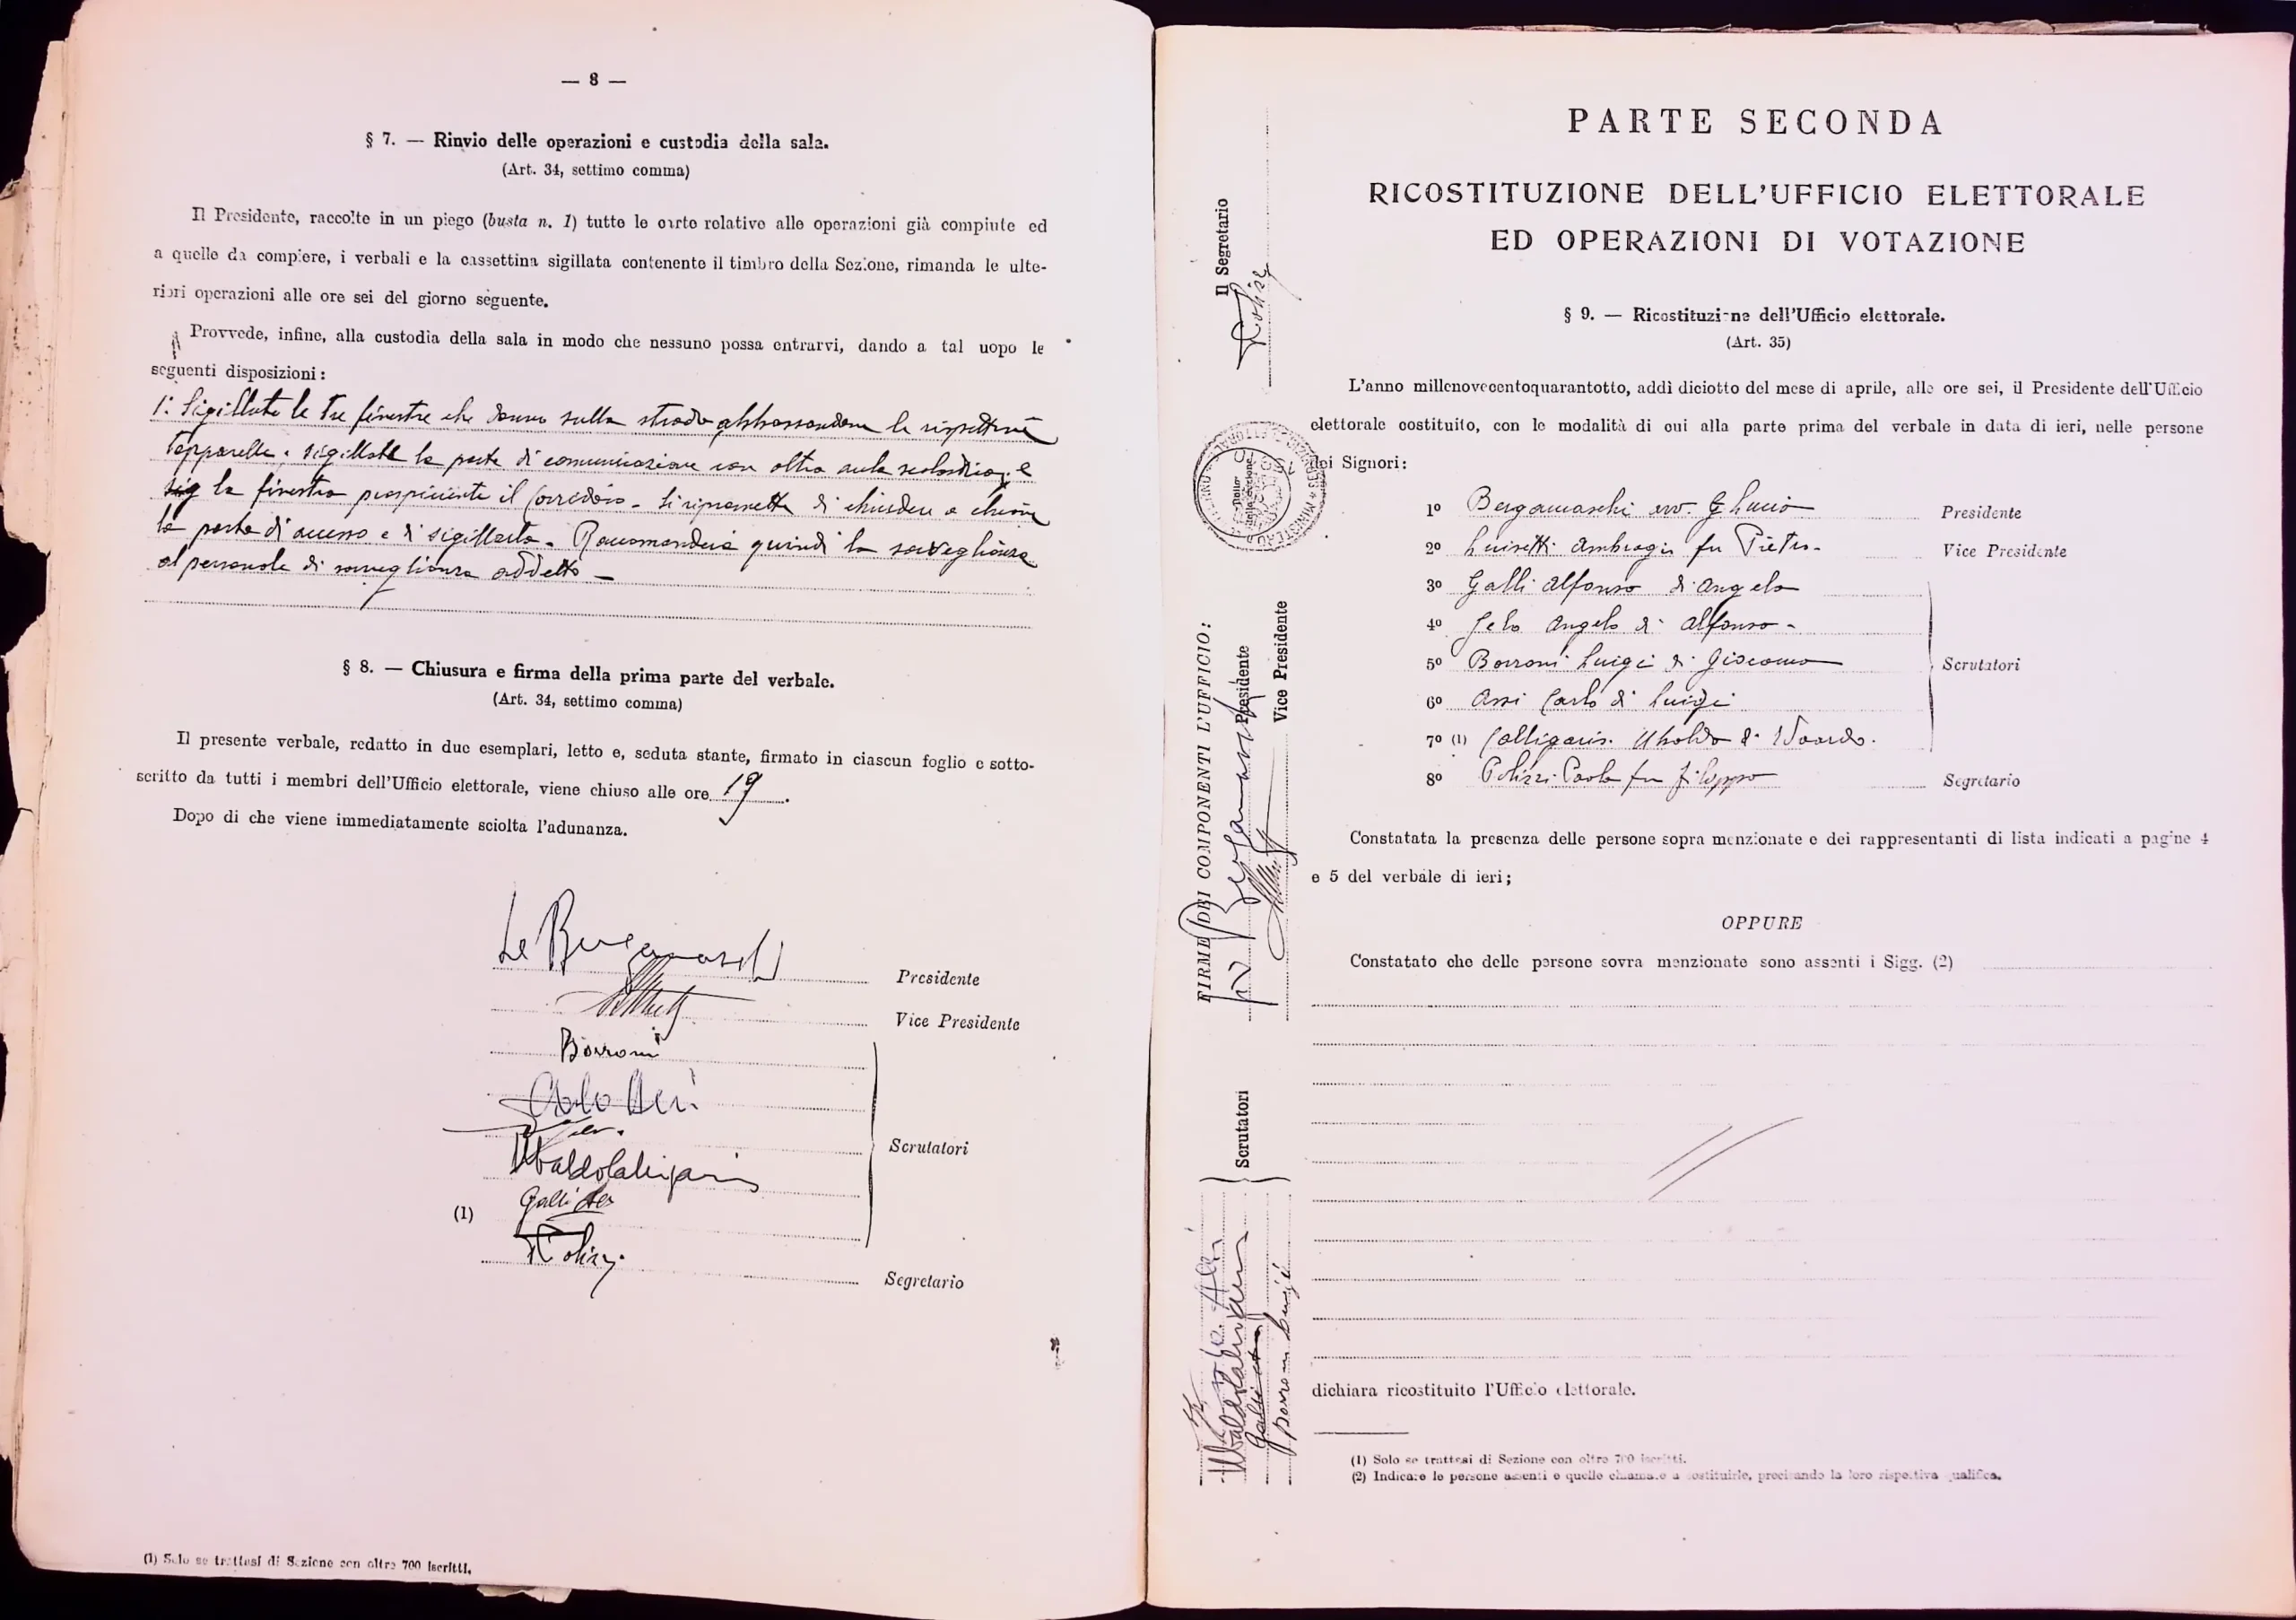 — 8 —
§ 7. — Rinvio delle operazioni e custodia della sala.
(Art. 34, settimo comma)
Il Presidente, raccolte in un piego (busta n. 1) tutte le carte relative alle operazioni già compiute ed
a quelle da compiere, i verbali e la cassettina sigillata contenente il timbro della Sezione, rimanda le ulte-
riori operazioni alle ore sei del giorno seguente.
Provvede, infine, alla custodia della sala in modo che nessuno possa entrarvi, dando a tal uopo le
seguenti disposizioni:
1: Sigillate le tre finestre che danno sulla strada abbassandone le rispettive
tapparelle, sigillate la porta di comunicazione con altra aula scolastica, e
sig la finestra prospiciente il corridoio - Si ripromette di chiudere a chiave
la porta di accesso e di sigillarla - Raccomanderà quindi la sorveglianza
al personale di sorveglianza addetto -
§ 8. — Chiusura e firma della prima parte del verbale.
(Art. 34, settimo comma)
Il presente verbale, redatto in due esemplari, letto e, seduta stante, firmato in ciascun foglio e sotto-
scritto da tutti i membri dell'Ufficio elettorale, viene chiuso alle ore 19.
Dopo di che viene immediatamente sciolta l'adunanza.
Bergamaschi Presidente
Vice Presidente
Borroni
Carlo Assi
Scrutatori
Ubaldo Calligaris
Galli
(1)
Polizzi
Segretario
(1) Solo se trattasi di Sezione con oltre 700 iscritti.
Il Segretario
Polizzi
FIRME DEI COMPONENTI L'UFFICIO:
Presidente
Bergamaschi
Vice Presidente
Scrutatori
Ubaldo Calligaris
Borroni Luigi
PARTE SECONDA
RICOSTITUZIONE DELL'UFFICIO ELETTORALE
ED OPERAZIONI DI VOTAZIONE
§ 9. — Ricostituzione dell'Ufficio elettorale.
(Art. 35)
L'anno millenovecentoquarantotto, addì diciotto del mese di aprile, alle ore sei, il Presidente dell'Ufficio
elettorale costituito, con le modalità di cui alla parte prima del verbale in data di ieri, nelle persone
dei Signori:
1º Bergamaschi avv. G. Lucio Presidente
2º Luisetti Ambrogio fu Pietro - Vice Presidente
3º Galli Alfonso di Angelo
4º Gelo Angelo di Alfonso -
5º Borroni Luigi di Giacomo Scrutatori
6º Assi Carlo di Luigi
7º (1) Calligaris Ubaldo di
8º Polizzi Paolo fu Filippo Segretario
Constatata la presenza delle persone sopra menzionate e dei rappresentanti di lista indicati a pagine 4
e 5 del verbale di ieri;
OPPURE
Constatato che delle persone sovra menzionate sono assenti i Sigg. (2)
dichiara ricostituito l'Ufficio elettorale.
(1) Solo se trattasi di Sezione con oltre 700 iscritti.
(2) Indicare le persone assenti e quelle chiamate a sostituirle, precisando la loro rispettiva qualifica.